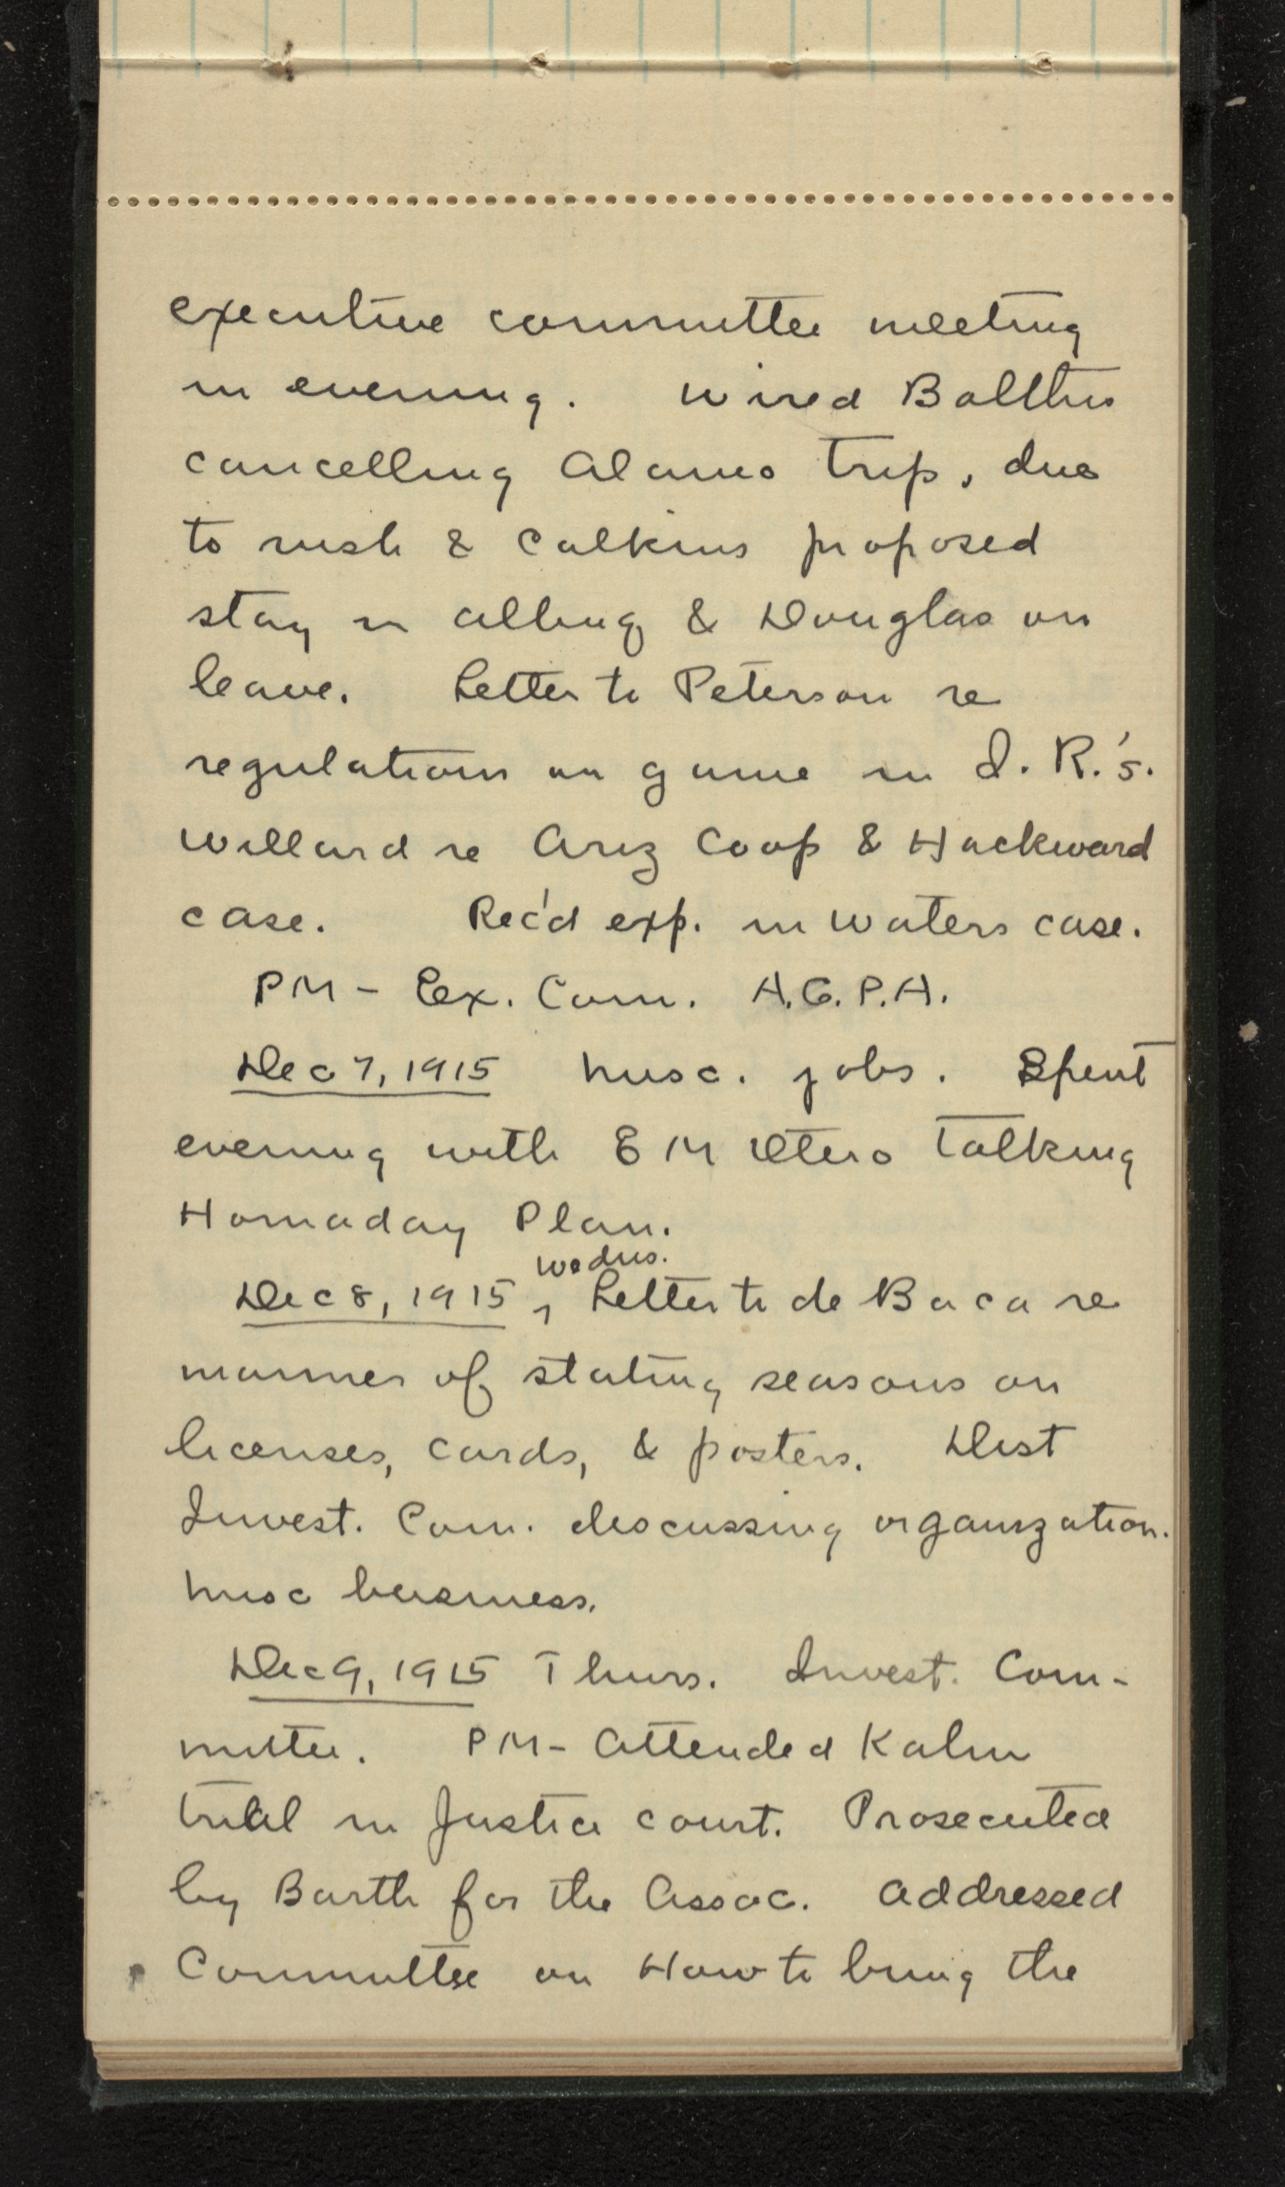 executive committee meeting
in evening. Wired Balthis
cancelling Alamo trip, due
to rush & Calkins proposed
stay in Albuq & Douglas on
leave. Letter to Peterson re
regulations on game in I. R.'s.
Willard re Ariz Coop & Hackward
case. Rec'd exp. in Waters case.
PM - Ex. Com. A.G.P.A.
Dec 7, 1915 Misc. jobs. Spent
evening with E M Otero talking
Hornaday Plan.
Wednes.
Dec 8, 1915, Letter to de Baca re
manner of stating seasons on
licenses, cards, & posters. Dist
Invest. Com. discussing organization.
Misc business.
Dec 9, 1915 Thurs. Invest. Com-
mittee. PM - Attended Kahn
trial in Justice court. Prosecuted
by Barth for the Assoc. Addressed
Committee on How to bring the